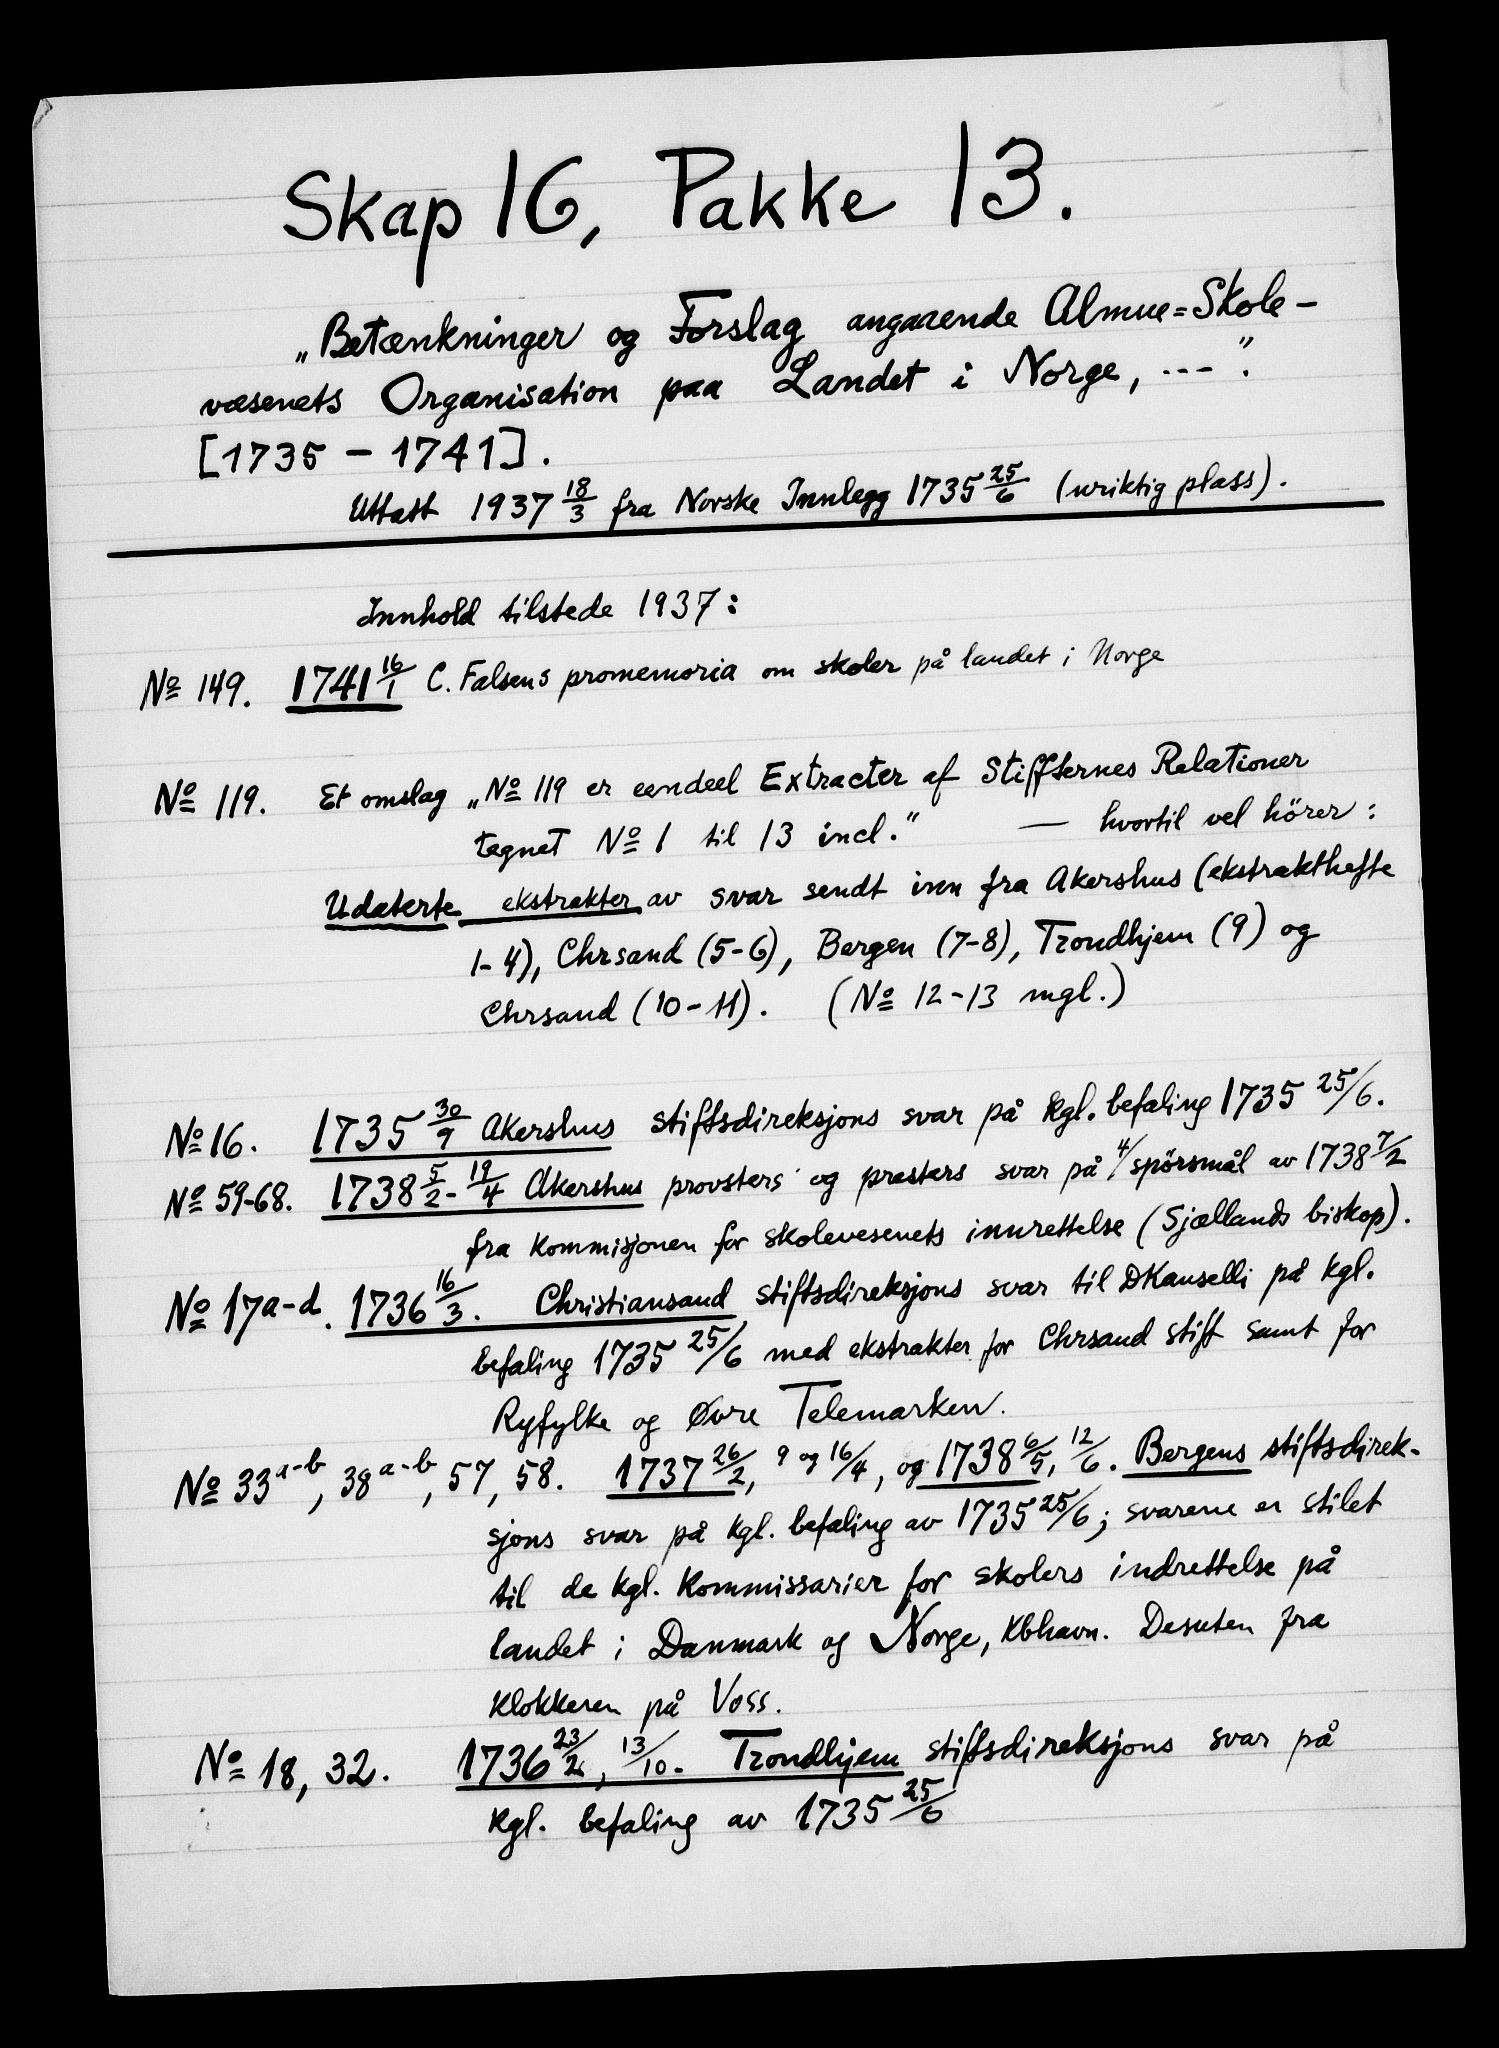 Skap 16, Pakke 13.
„Betænkninger og Forslag angaaende Almue=Skole-
væsenets Organisation paa Landet i Norge, ---".
[1735 - 1741].
Uttatt 1937 18/3 fra Norske Innlegg 1735 25/6 (uriktig plass).
Innhold tilstede 1937:
No 149. 1741 16/1 C. Falsens promemoria om skoler på landet i Norge
No 119. Et omslag „No 119 er eendeel Extracter af Stiffternes Relationer
tegnet No 1 til 13 incl." — hvortil vel hörer:
Udaterte ekstrakter av svar sendt inn fra Akershus (ekstrakthefte
1-4), Chrsand (5-6), Bergen (7-8), Trondhjem (9) og
Chrsand (10-11). (No 12-13 mgl.)
No 16. 1735 30/9 Akershus stiftsdireksjons svar på kgl. befaling 1735 25/6.
No 59-68. 1738 5/2 - 19/4 Akershus provsters og presters svar på 4/ spörsmål av 1738 7/2
fra kommisjonen for skolevesenets innrettelse (Sjællands biskop).
No 17a-d. 1736 16/3. Christiansand stiftsdireksjons svar til DKanselli på kgl.
befaling 1735 25/6 med ekstrakter for Chrsand stift samt for
Ryfylke og Øvre Telemarken.
No 33a-b, 38a-b, 57, 58. 1737 26/2, 9 og 16/4, og 1738 6/5, 12/6. Bergens stiftsdirek-
sjons svar på kgl. befaling av 1735 25/6; svarene er stilet
til de kgl. kommissarier for skolers indrettelse på
landet i Danmark og Norge, Kbhavn. Desuten fra
klokkeren på Voss.
No 18, 32. 1736 23/2, 13/10. Trondhjem stiftsdireksjons svar på
kgl. befaling av 1735 25/6